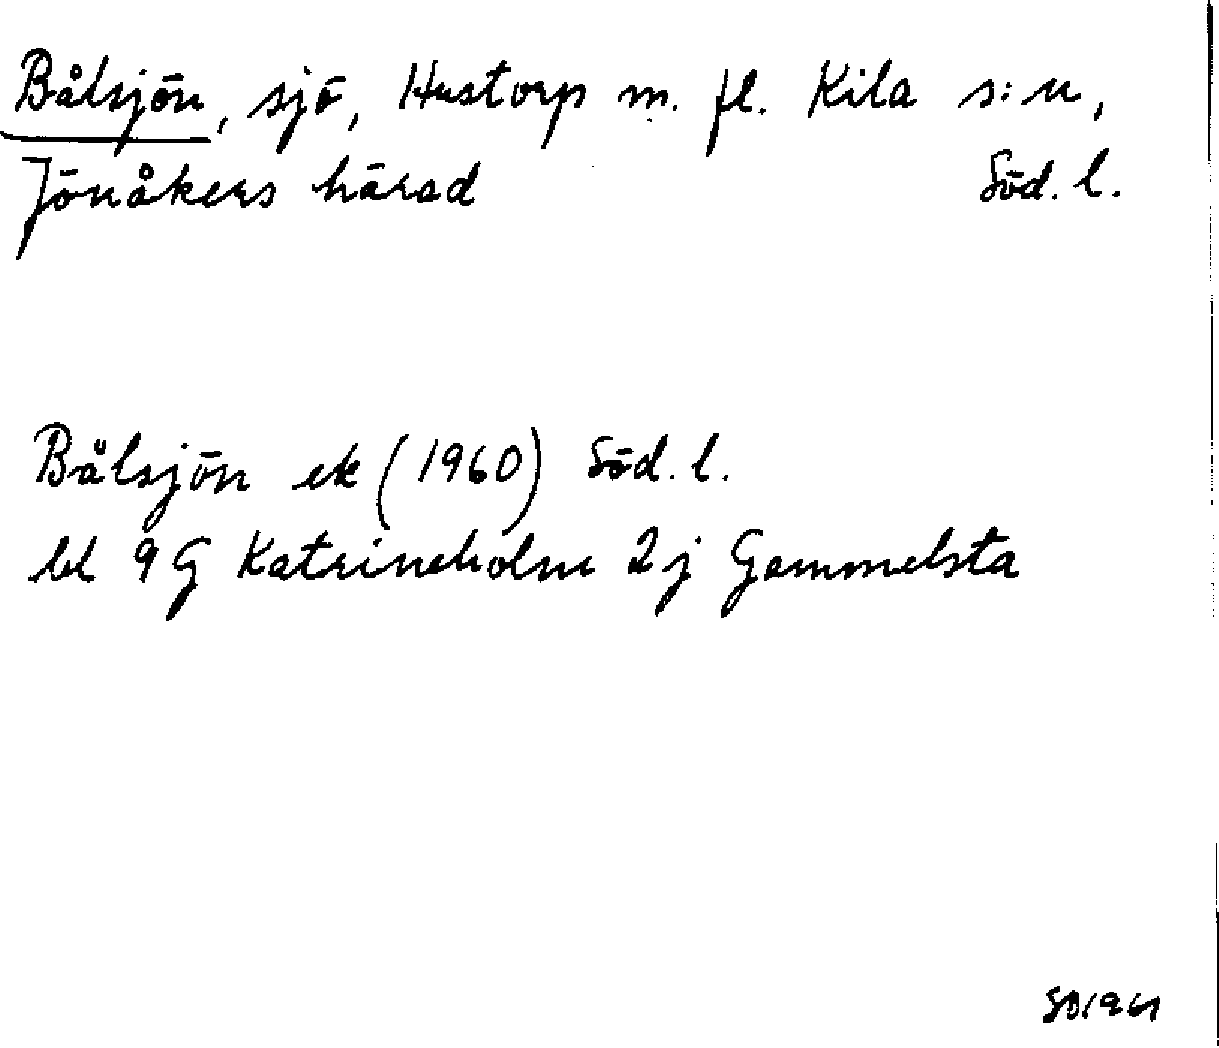 Bålsjön, sjö, Hustorp m. fl. Kila s:n,
Jönåkers härad Söd. l.
Bålsjön ek (1960) Söd. l.
bl 9 G Katrineholm 2j Gammelsta